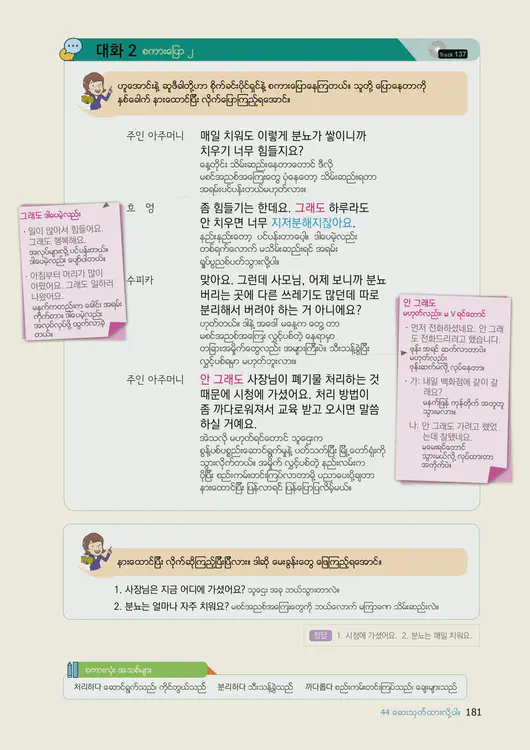 대화 2 စကားပြော ၂
Track 137
ဟူအောင်းနဲ့ ဆူဖီခါတို့ဟာ စိုက်ခင်းပိုင်ရှင်နဲ့ စကားပြောနေကြတယ်။ သူတို့ ပြောနေတာကို
နှစ်ခေါက် နားထောင်ပြီး လိုက်ပြောကြည့်ရအောင်။
주인 아주머니 매일 치워도 이렇게 분뇨가 쌓이니까
치우기 너무 힘들지요?
နေ့တိုင်း သိမ်းဆည်းနေတာတောင် ဒီလို
မစင်အညစ်အကြေးတွေ ပုံနေတော့ သိမ်းဆည်းရတာ
အရမ်းပင်ပန်းတယ်မဟုတ်လား။
흐엉 좀 힘들기는 한데요. 그래도 하루라도
안 치우면 너무 지저분해지잖아요.
နည်းနည်းတော့ ပင်ပန်းတာပေါ့။ ဒါပေမဲ့လည်း
တစ်ရက်လောက် မသိမ်းဆည်းရင် အရမ်း
ရှုပ်ပွညစ်ပတ်သွားလို့ပါ။
수피카 맞아요. 그런데 사모님, 어제 보니까 분뇨
버리는 곳에 다른 쓰레기도 많던데 따로
분리해서 버려야 하는 거 아니에요?
ဟုတ်တယ်။ ဒါနဲ့ အဒေါ် မနေ့က တွေ့ တာ
မစင်အညစ်အကြေး လွှင့်ပစ်တဲ့ နေရာမှာ
တခြားအမှိုက်တွေလည်း အများကြီးပဲ။ သီးသန့်ခွဲပြီး
လွှင့်ပစ်ရမှာ မဟုတ်ဘူးလား။
주인 아주머니 안 그래도 사장님이 폐기물 처리하는 것
때문에 시청에 가셨어요. 처리 방법이
좀 까다로워져서 교육 받고 오시면 말씀
하실 거예요.
အဲသလို မဟုတ်ရင်တောင် သူဌေးက
စွန့်ပစ်ပစ္စည်းဆောင်ရွက်မှုနဲ့ ပတ်သက်ပြီး မြို့တော်ရုံးကို
သွားလိုက်တယ်။ အမှိုက် လွှင့်ပစ်တဲ့ နည်းလမ်းက
ပိုပြီး စည်းကမ်းတင်းကြပ်လာတာမို့ ပညာပေးပို့ချတာ
နားထောင်ပြီး ပြန်လာရင် ပြန်ပြောပြလိမ့်မယ်။
그래도 ဒါပေမဲ့လည်း
· 일이 많아서 힘들어요.
그래도 행복해요.
အလုပ်များလို့ ပင်ပန်းတယ်။
ဒါပေမဲ့လည်း ပျော်ပါတယ်။
· 아침부터 머리가 많이
아팠어요. 그래도 일하러
나왔어요.
မနက်ကတည်းက ခေါင်း အရမ်း
ကိုက်တာ။ ဒါပေမဲ့လည်း
အလုပ်လုပ်ဖို့ ထွက်လာခဲ့
တယ်။
안 그래도
မဟုတ်လည်း၊ မ V ရင်တောင်
· 먼저 전화하셨네요. 안 그래
도 전화드리려고 했습니다.
ဖုန်း အရင် ဆက်လာတာပဲ။
မဟုတ်လည်း
ဖုန်းဆက်မလို့ လုပ်နေတာ။
· 가: 내일 백화점에 같이 갈
래요?
မနက်ဖြန် ကုန်တိုက် အတူတူ
သွားမလား။
나: 안 그래도 가려고 했었
는데 잘됐네요.
မမေးရင်တောင်
သွားမယ်လို့ လုပ်ထားတာ
အကိုက်ပဲ။
နားထောင်ပြီး လိုက်ဆိုကြည့်ပြီးပြီလား။ ဒါဆို မေးခွန်းတွေ ဖြေကြည့်ရအောင်။
1. 사장님은 지금 어디에 가셨어요? သူဌေး အခု ဘယ်သွားတာလဲ။
2. 분뇨는 얼마나 자주 치워요? မစင်အညစ်အကြေးတွေကို ဘယ်လောက် မကြာခဏ သိမ်းဆည်းလဲ။
정답 1. 시청에 가셨어요. 2. 분뇨는 매일 치워요.
စကားလုံး အသစ်များ
처리하다 ဆောင်ရွက်သည် ကိုင်တွယ်သည် 분리하다 သီးသန့်ခွဲသည် 까다롭다 စည်းကမ်းတင်းကြပ်သည် ဈေးများသည်
44 ဆေးသုတ်ထားလို့ပါ။ 181